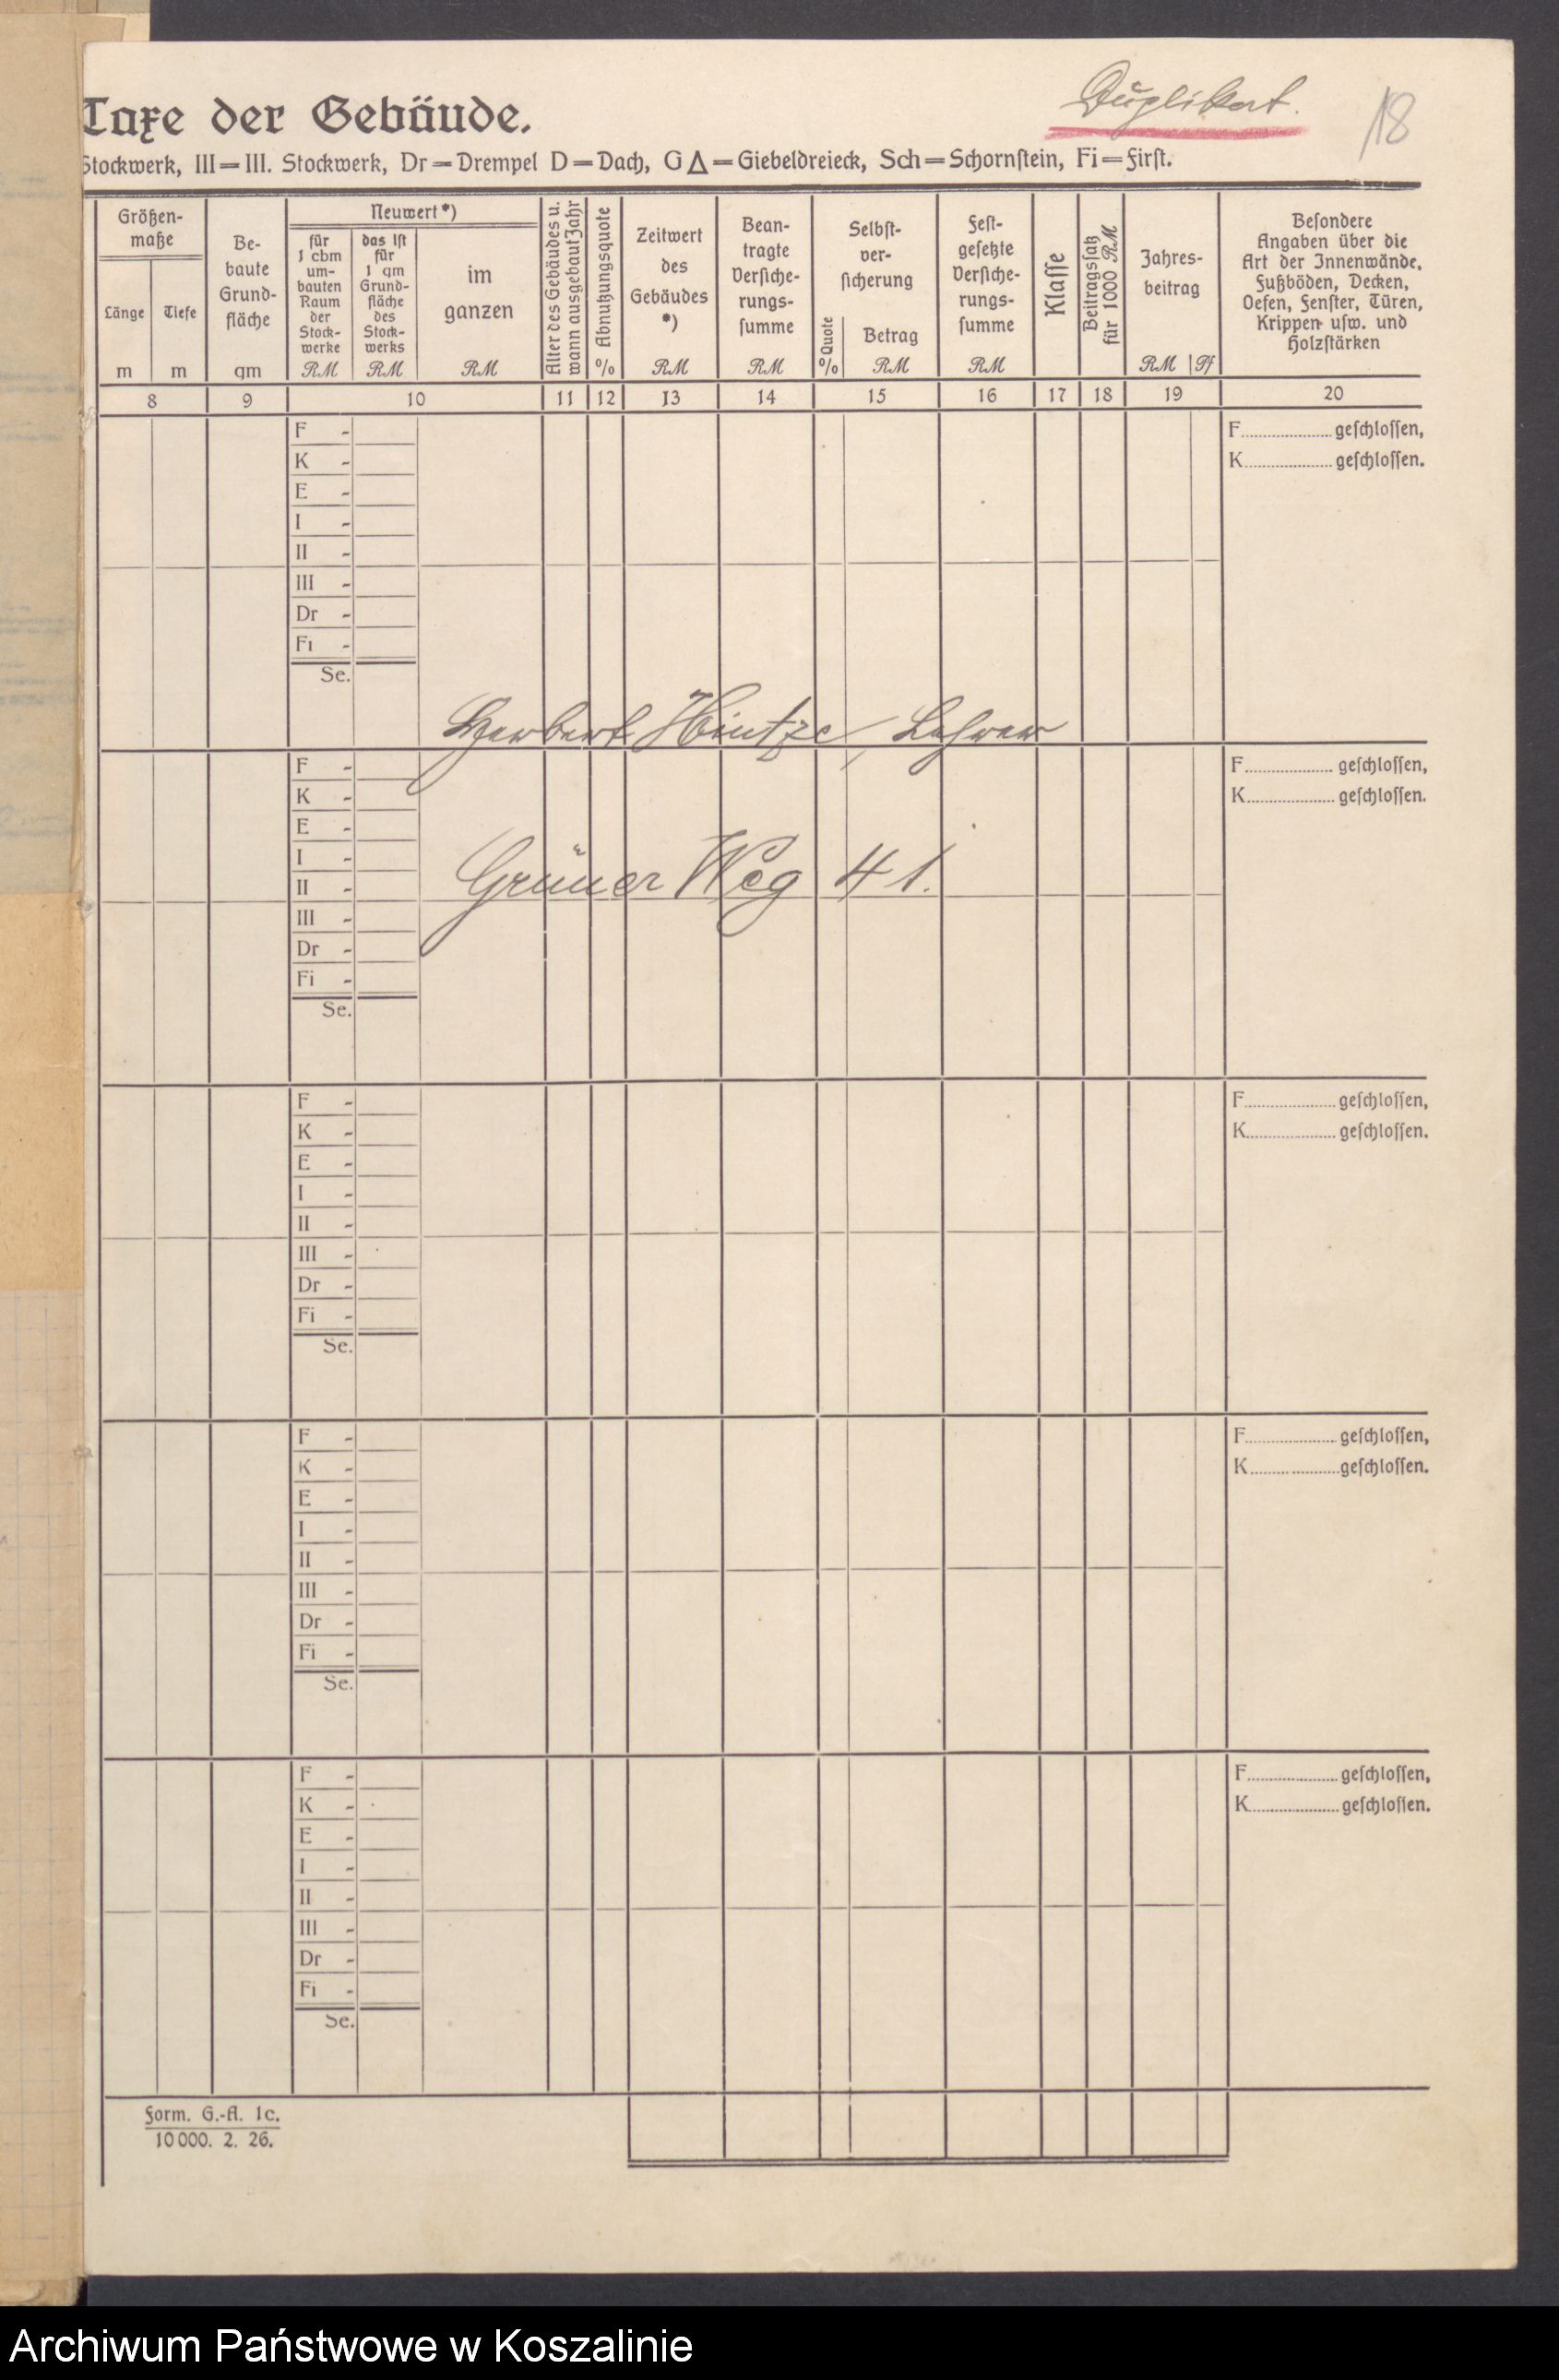 Duplikat.
18
Taxe der Gebäude.
Stockwerk, III = III. Stockwerk, Dr = Drempel D = Dach, G Δ = Giebeldreieck, Sch = Schornſtein, Fi = Firſt.
Größen-
maße
Länge
m
Tiefe
m
Be-
baute
Grund-
fläche
qm
Neuwert *)
für
1 cbm
um-
bauten
Raum
der
Stock-
werke
RM
das iſt
für
1 qm
Grund-
fläche
des
Stock-
werks
RM
im
ganzen
RM
Alter des Gebäudes u.
wann ausgebaut Jahr
Abnutzungsquote
%
Zeitwert
des
Gebäudes
*)
RM
Bean-
tragte
Verſiche-
rungs-
ſumme
RM
Selbſt-
ver-
ſicherung
Quote
%
Betrag
RM
Feſt-
geſetzte
Verſiche-
rungs-
ſumme
RM
Klaſſe
Beitragsſatz
für 1000 RM
Jahres-
beitrag
RM Pf
Beſondere
Angaben über die
Art der Innenwände,
Fußböden, Decken,
Oefen, Fenſter, Türen,
Krippen uſw. und
Holzſtärken
8 9 10 11 12 13 14 15 16 17 18 19 20
F - F. geſchloſſen,
K - K. geſchloſſen.
E -
I -
II -
III -
Dr -
Fi -
Se.
Herbert Hintze, Lehrer
F - F. geſchloſſen,
K - K. geſchloſſen.
E -
I -
Grüner Weg 41.
II -
III -
Dr -
Fi -
Se.
F - F. geſchloſſen,
K - K. geſchloſſen.
E -
I -
II -
III -
Dr -
Fi -
Se.
F - F. geſchloſſen,
K - K. geſchloſſen.
E -
I -
II -
III -
Dr -
Fi -
Se.
F - F. geſchloſſen,
K - K. geſchloſſen.
E -
I -
II -
III -
Dr -
Fi -
Se.
Form. G.-A. 1c.
10 000. 2. 26.
Archiwum Państwowe w Koszalinie